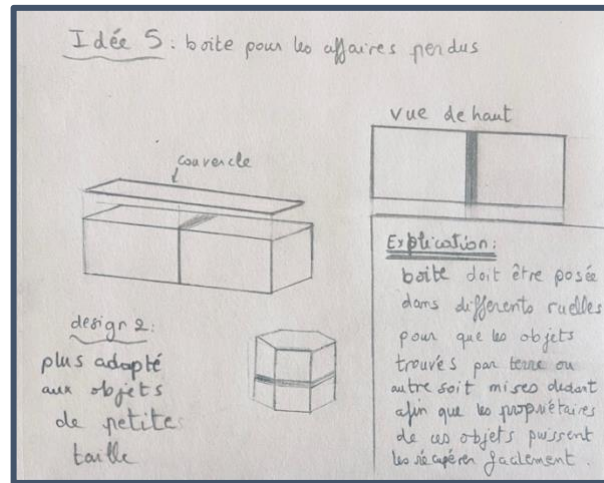 Idée 5 : boite pour les affaires perdus
vue de haut
couvercle
design 2 :
plus adapté
aux objets
de petite
taille
Explication :
boite doit être posée
dans differents ruelles
pour que les objets
trouvés par terre ou
autre soit mises dedant
afin que les propriétaires
de ces objets puissent
les récupérer facilement.